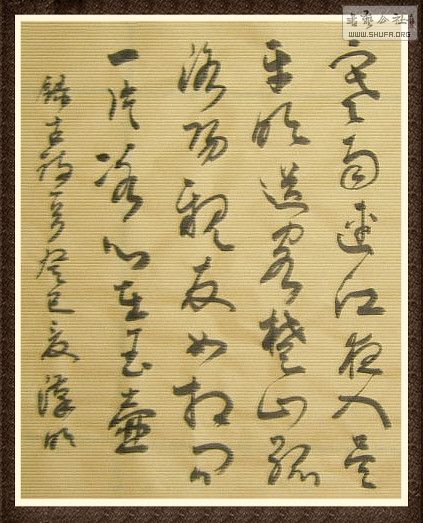 書藝公社
WWW.SHUFA.ORG
寒雨連江夜入吳
平明送客楚山孤
洛陽親友如相問
一片冰心在玉壺
錄古詩一首癸巳夏漢明